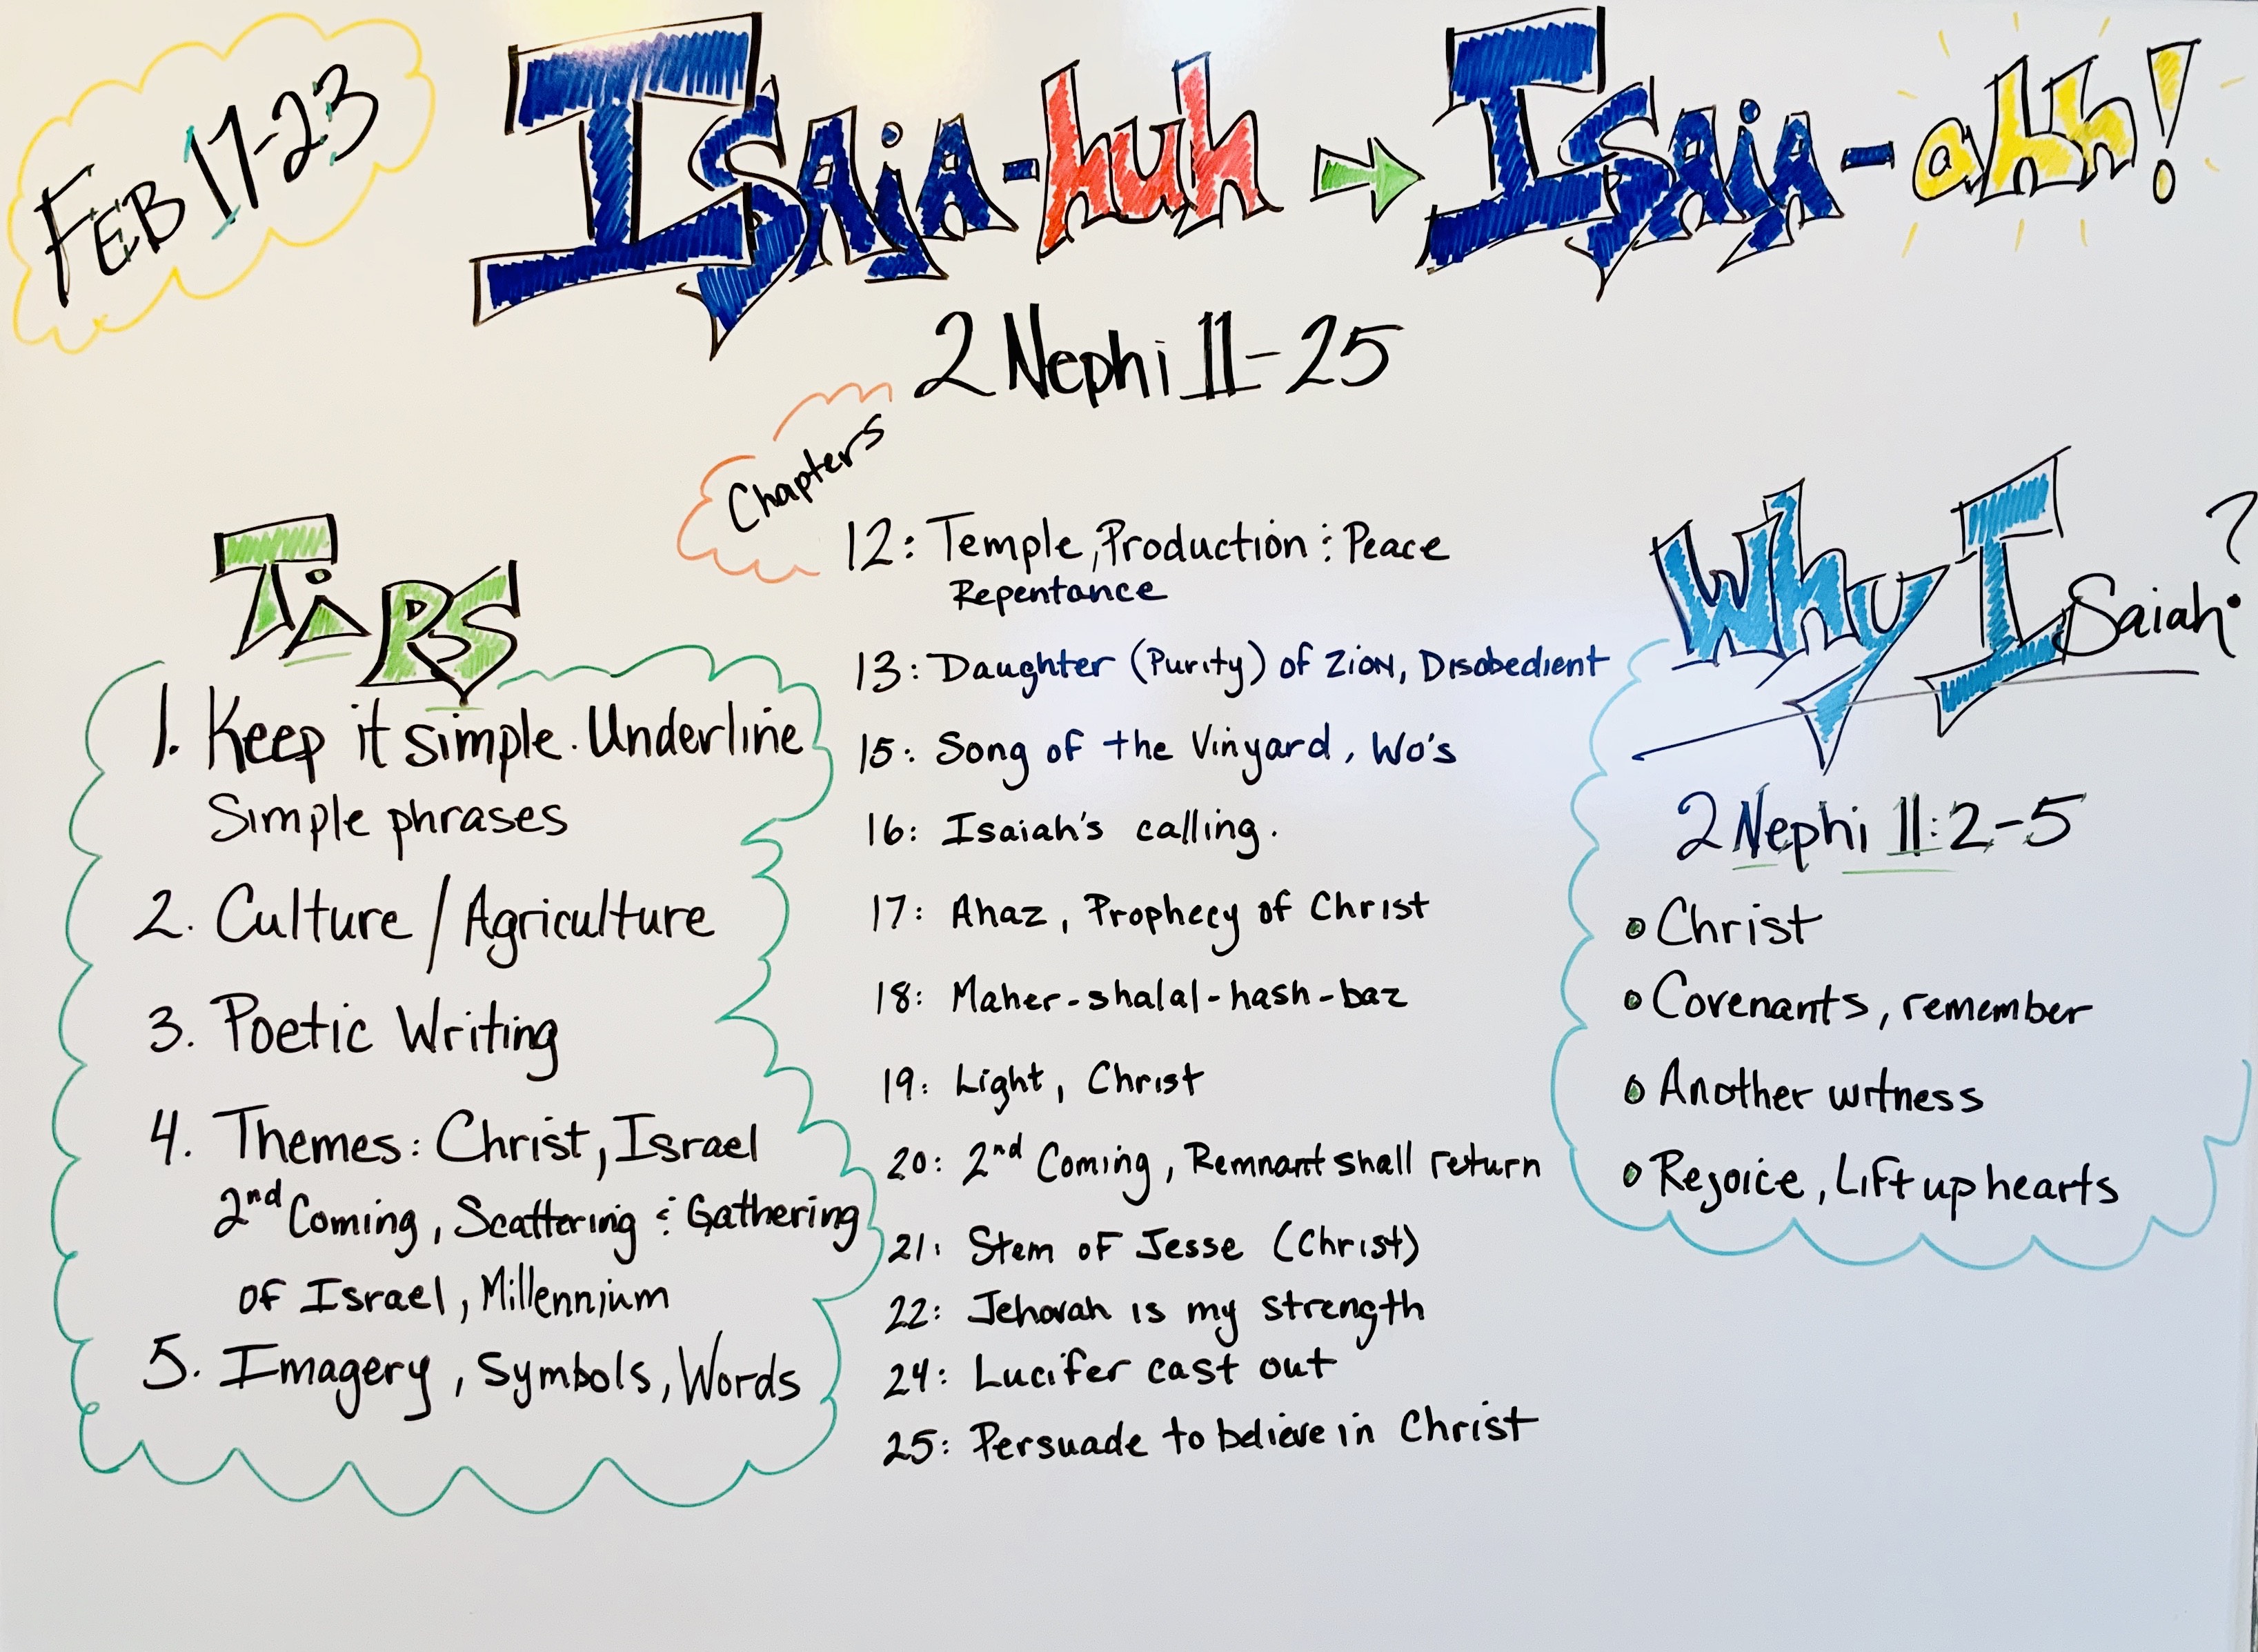 FEB 17-23
Isaia-huh → Isaia-ahh!
2 Nephi 11-25
Tips
1. Keep it simple. Underline
Simple phrases
2. Culture / Agriculture
3. Poetic Writing
4. Themes: Christ, Israel
2nd Coming, Scattering & Gathering
of Israel, Millennium
5. Imagery, Symbols, Words
Chapters
12: Temple, Production & Peace
Repentance
13: Daughter (Purity) of Zion, Disobedient
15: Song of the Vinyard, Wo's
16: Isaiah's calling.
17: Ahaz, Prophecy of Christ
18: Maher-shalal-hash-baz
19: Light, Christ
20: 2nd Coming, Remnant shall return
21: Stem of Jesse (Christ)
22: Jehovah is my strength
24: Lucifer cast out
25: Persuade to believe in Christ
Why Isaiah?
2 Nephi 11:2-5
Christ
Covenants, remember
Another witness
Rejoice, Lift up hearts